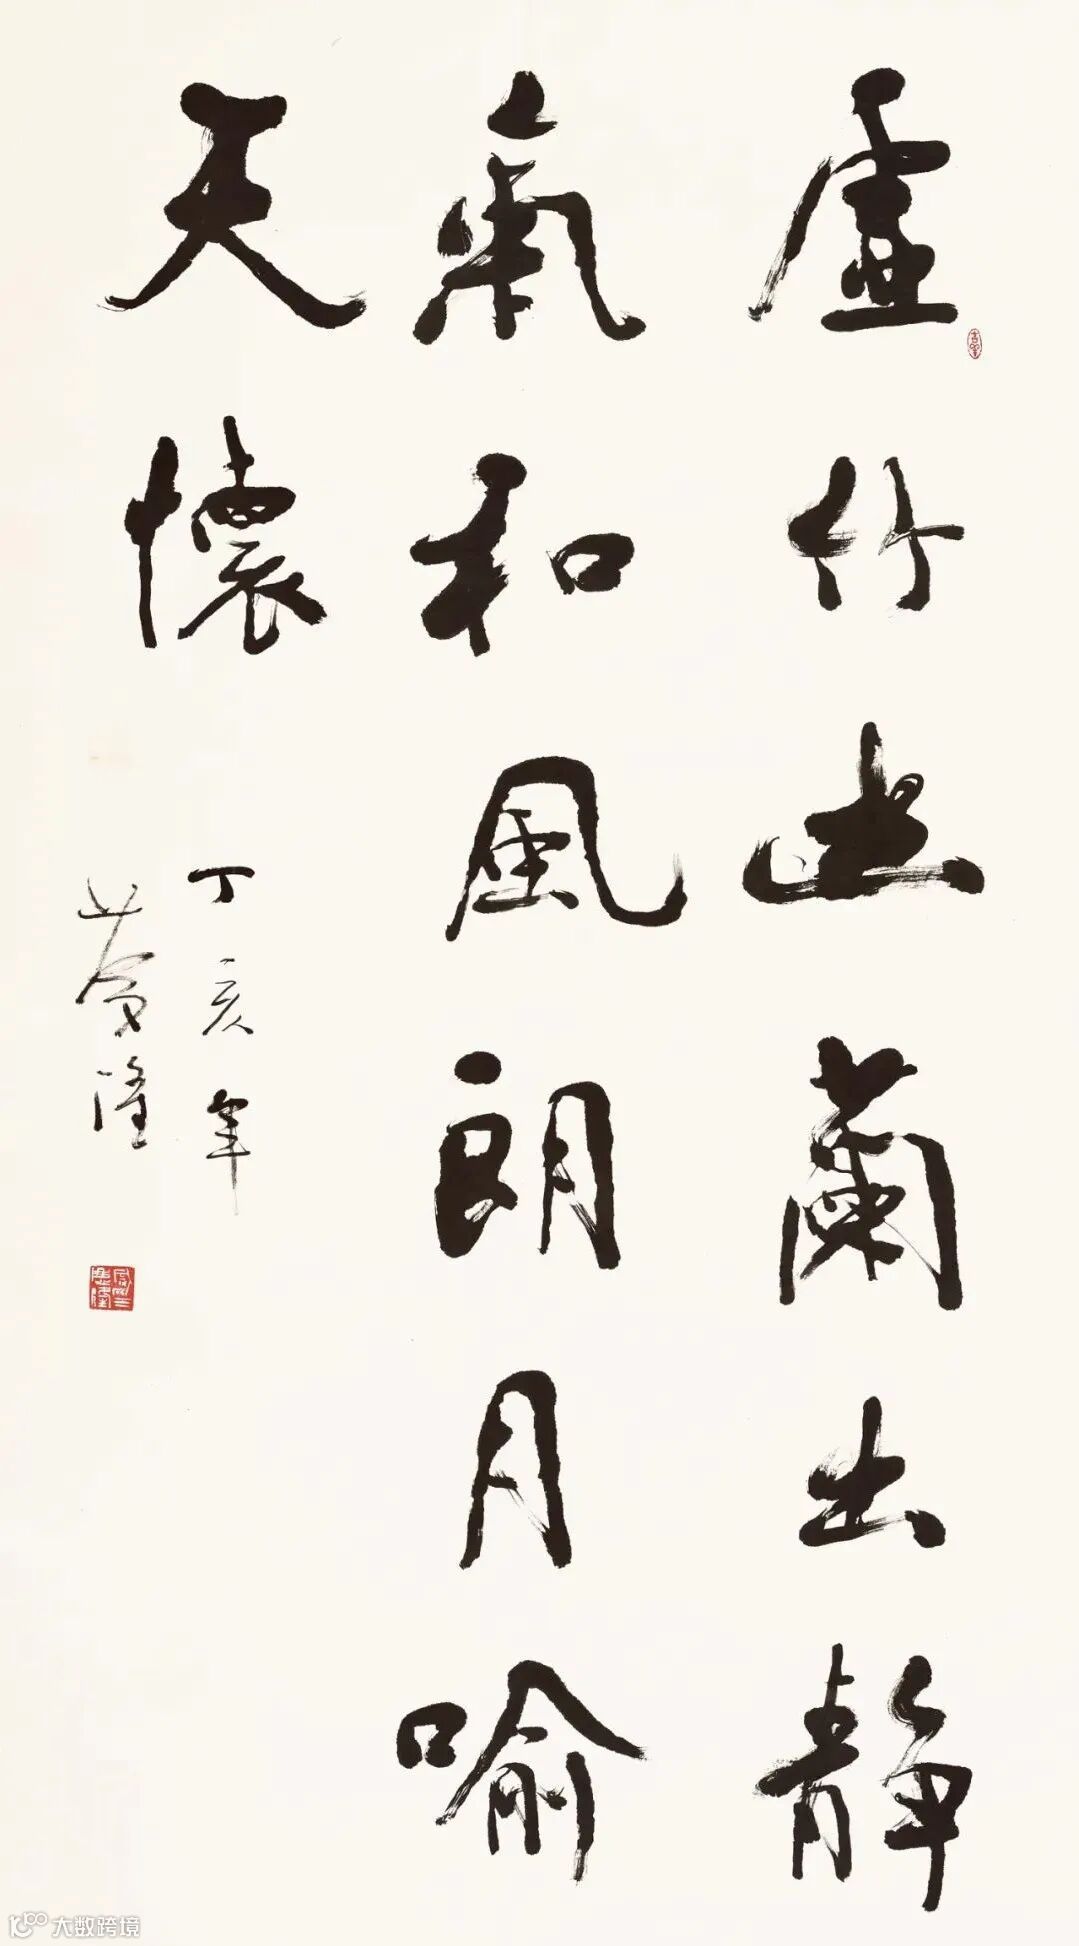 虛竹幽蘭出靜
氣和風朗月喻
天懷
丁亥年
夢隆
大数跨境